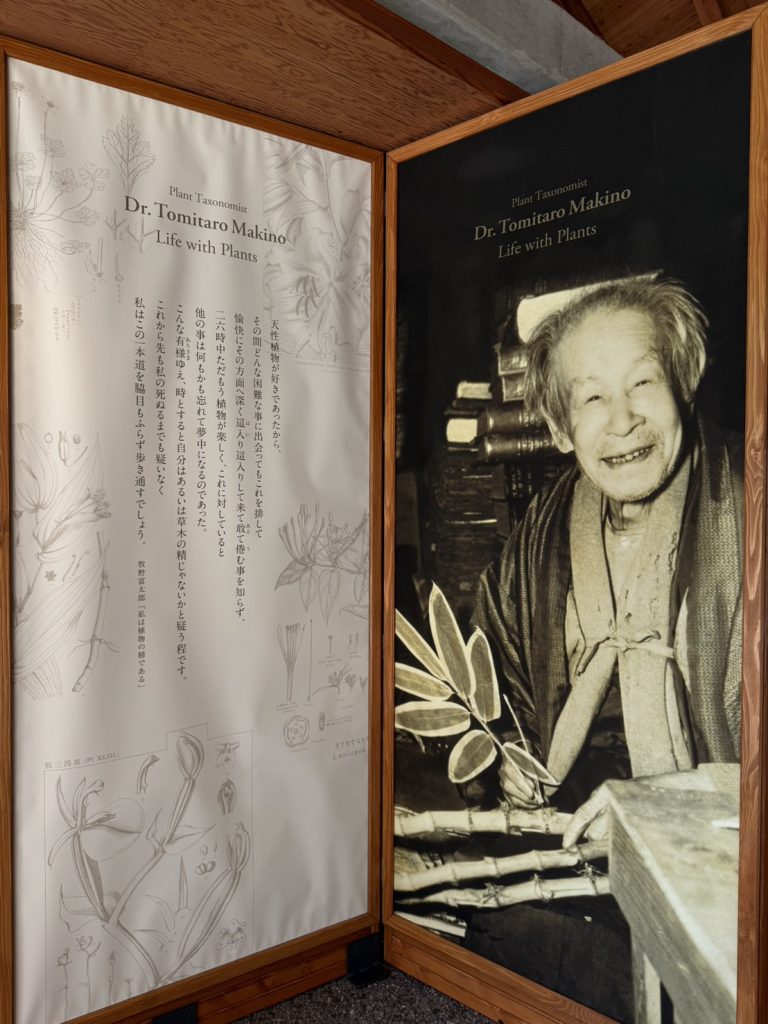 Plant Taxonomist
Dr. Tomitaro Makino
Life with Plants
天性植物が好きであったから、
その間どんな困難な事に出会ってもこれを排して
愉快にその方面へ深く這入り這入りして来て敢て倦む事を知らず、
二六時中ただもう植物が楽しく、これに対していると
他の事は何もかも忘れて夢中になるのであった。
こんな有様ゆえ、時とすると自分はあるいは草木の精じゃないかと疑う程です。
これから先も私の死ぬるまでも疑いなく
私はこの一本道を脇目もふらず歩き通すでしょう。
牧野富太郎「私は植物の精である」
版三四第 (Pl. XLIII.)
Plant Taxonomist
Dr. Tomitaro Makino
Life with Plants